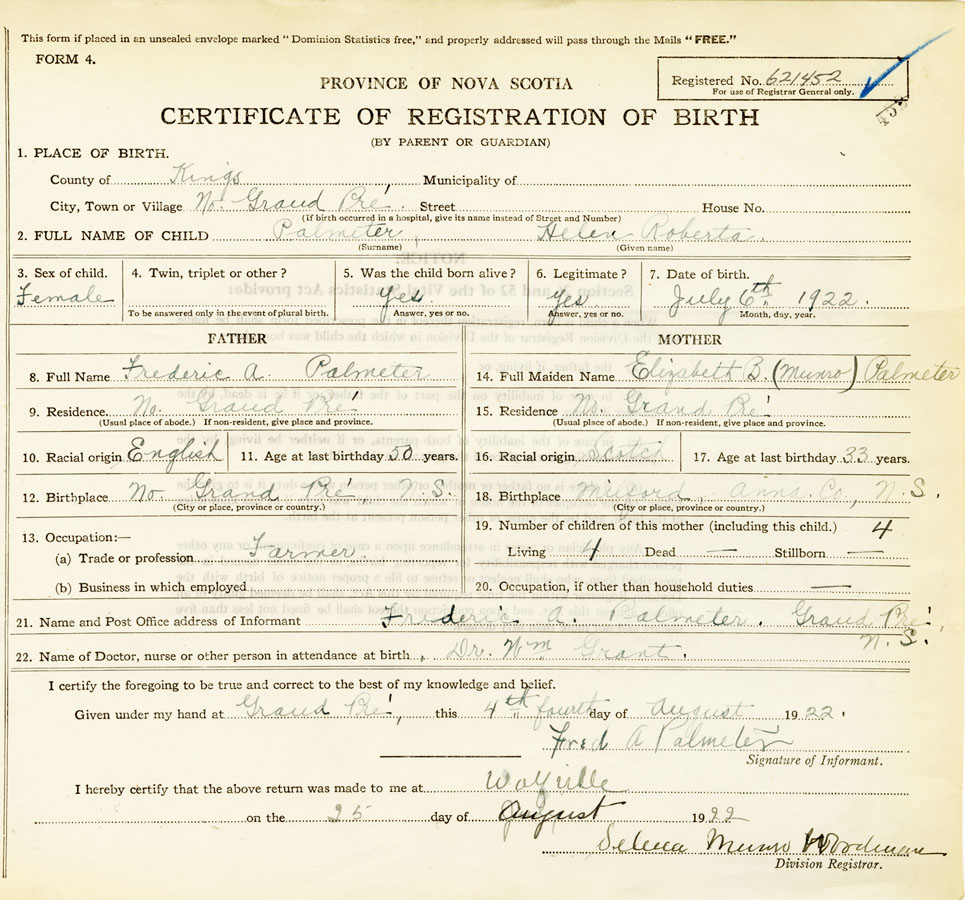 This form if placed in an unsealed envelope marked "Dominion Statistics free," and properly addressed will pass through the Mails "FREE."
FORM 4.
Registered No. 621452
For use of Registrar General only.
PROVINCE OF NOVA SCOTIA
CERTIFICATE OF REGISTRATION OF BIRTH
(BY PARENT OR GUARDIAN)
1. PLACE OF BIRTH.
County of Kings, Municipality of
City, Town or Village No. Grand Pré. Street House No.
(If birth occurred in a hospital, give its name instead of Street and Number)
2. FULL NAME OF CHILD Palmeter, Helen Roberta.
(Surname) (Given name)
3. Sex of child. 4. Twin, triplet or other? 5. Was the child born alive? 6. Legitimate? 7. Date of birth.
Female Yes. Yes July 6th 1922.
To be answered only in the event of plural birth. Answer, yes or no. Answer, yes or no. Month, day, year.
FATHER MOTHER
8. Full Name Frederic A. Palmeter 14. Full Maiden Name Elizabeth B. (Munro) Palmeter
9. Residence. No. Grand Pré 15. Residence No. Grand Pré
(Usual place of abode.) If non-resident, give place and province. (Usual place of abode.) If non-resident, give place and province.
10. Racial origin English 11. Age at last birthday 50 years. 16. Racial origin Scotch 17. Age at last birthday 33 years.
12. Birthplace No. Grand Pré, N.S. 18. Birthplace Milford, Anna. Co, N.S.
(City or place, province or country.) (City or place, province or country.)
13. Occupation:— 19. Number of children of this mother (including this child.) 4
(a) Trade or profession Farmer. Living 4 Dead — Stillborn —
(b) Business in which employed 20. Occupation, if other than household duties —
21. Name and Post Office address of Informant Frederic A. Palmeter. Grand Pré,
N.S.
22. Name of Doctor, nurse or other person in attendance at birth, Dr. Wm Grant.
I certify the foregoing to be true and correct to the best of my knowledge and belief.
Given under my hand at Grand Pré, this 4th fourth day of August 1922.
Fred A Palmeter
Signature of Informant.
I hereby certify that the above return was made to me at Wolfville
on the 25 day of August 1922
Selena Munro Woodman
Division Registrar.